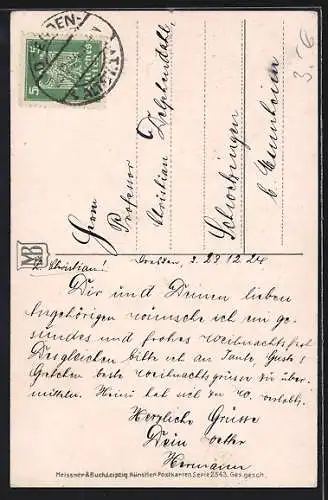 DEN-
ALTST.
5 5
3.-€
Herrn
Professor
Christian Delphendahl,
Schochingen
b. 
MB
L. Christian! Dresden, d. 23 12 24
Dir und Deinen lieben
Angehörigen wünsche ich ein ge-
sundes und frohes Weihnachtsfest
Desgleichen bitte ich an Tante, Guste &
Gretchen beste Weihnachtsgrüsse zu über-
mitteln. Heini hat sich verlobt.
Herzliche Grüsse
Dein Vetter
Hermann
Meissner & Buch, Leipzig, Künstler-Postkarten Serie 2343. Ges. gesch.